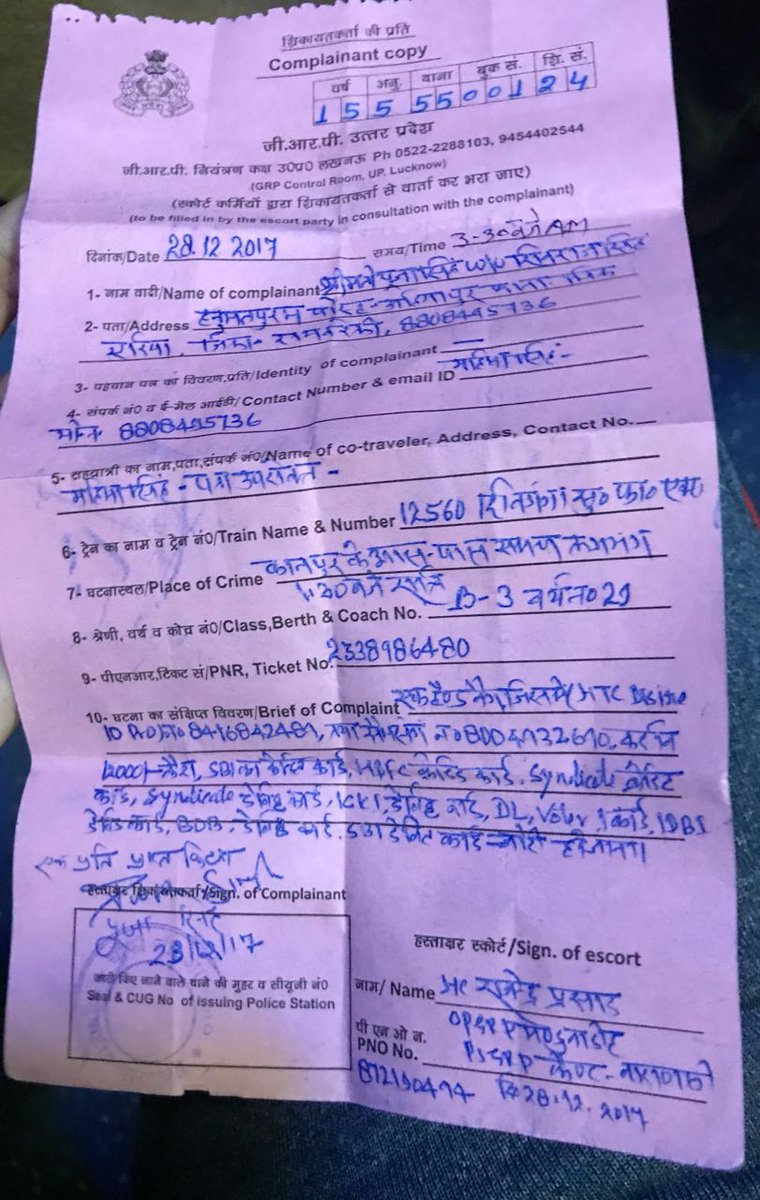 शिकायतकर्ता की प्रति
Complainant copy
वर्ष अनु. थाना बुक सं. शि. सं.
1 5 5 5 5 0 0 1 2 4
जी.आर.पी. उत्तर प्रदेश
जी.आर.पी. नियंत्रण कक्ष उ0प्र0 लखनऊ Ph 0522-2288103, 9454402544
(GRP Control Room, UP, Lucknow)
(स्कोर्ट कर्मियों द्वारा शिकायतकर्ता से वार्ता कर भरा जाए)
(to be filled in by the escort party in consultation with the complainant)
दिनांक/Date 28.12 2017 समय/Time 3-30 बजे AM
1- नाम वादी/Name of complainant श्रीमती पूजा सिंह W/O सिंह
2- पता/Address
8808495736
3- पहचान पत्र का विवरण,प्रति/Identity of complainant
4- संपर्क नं0 व ई-मेल आईडी/Contact Number & email ID
मो0न0 8808495736
5- सहयात्री का नाम,पता,संपर्क नं0/Name of co-traveler, Address, Contact No.
सिंह - पता उपरोक्त -
6- ट्रेन का नाम व ट्रेन नं0/Train Name & Number 12560 शिवगंगा सु0 फा0 एक्स
7- घटनास्थल/Place of Crime कानपुर के आस-पास समय लगभग
1.30 बजे रात्रि
8- श्रेणी, वर्थ व कोच नं0/Class,Berth & Coach No. B-3 वर्थ न0 29
9- पीएनआर,टिकट सं/PNR, Ticket No. 2338986480
10- घटना का संक्षिप्त विवरण/Brief of Complaint एक हैण्ड बैग जिसमें HTC Desire
10 Pro न0 8416842481, न0 8004932690,
12000/- कैश, SBI का क्रेडिट कार्ड, HDFC क्रेडिट कार्ड, Syndicate क्रेडिट
कार्ड, Syndicate डेबिट कार्ड, ICICI डेबिट कार्ड, DL, Voter I कार्ड, IDBI
डेबिट कार्ड, BOB, डेबिट कार्ड, SBI डेबिट कार्ड चोरी हो जाना।
एक प्रति प्राप्त किया
हस्ताक्षर शिकायतकर्ता/Sign. of Complainant
पूजा सिंह
28/12/17
जारी किए जाने वाले थाने की मुहर व सीयूजी नं0
Seal & CUG No of issuing Police Station
हस्ताक्षर स्कोर्ट/Sign. of escort
नाम/ Name HC राजेन्द्र प्रसाद
पी एन ओ न.
PNO No. कैण्ट - वाराणसी
812190494 दि 28.12.2017